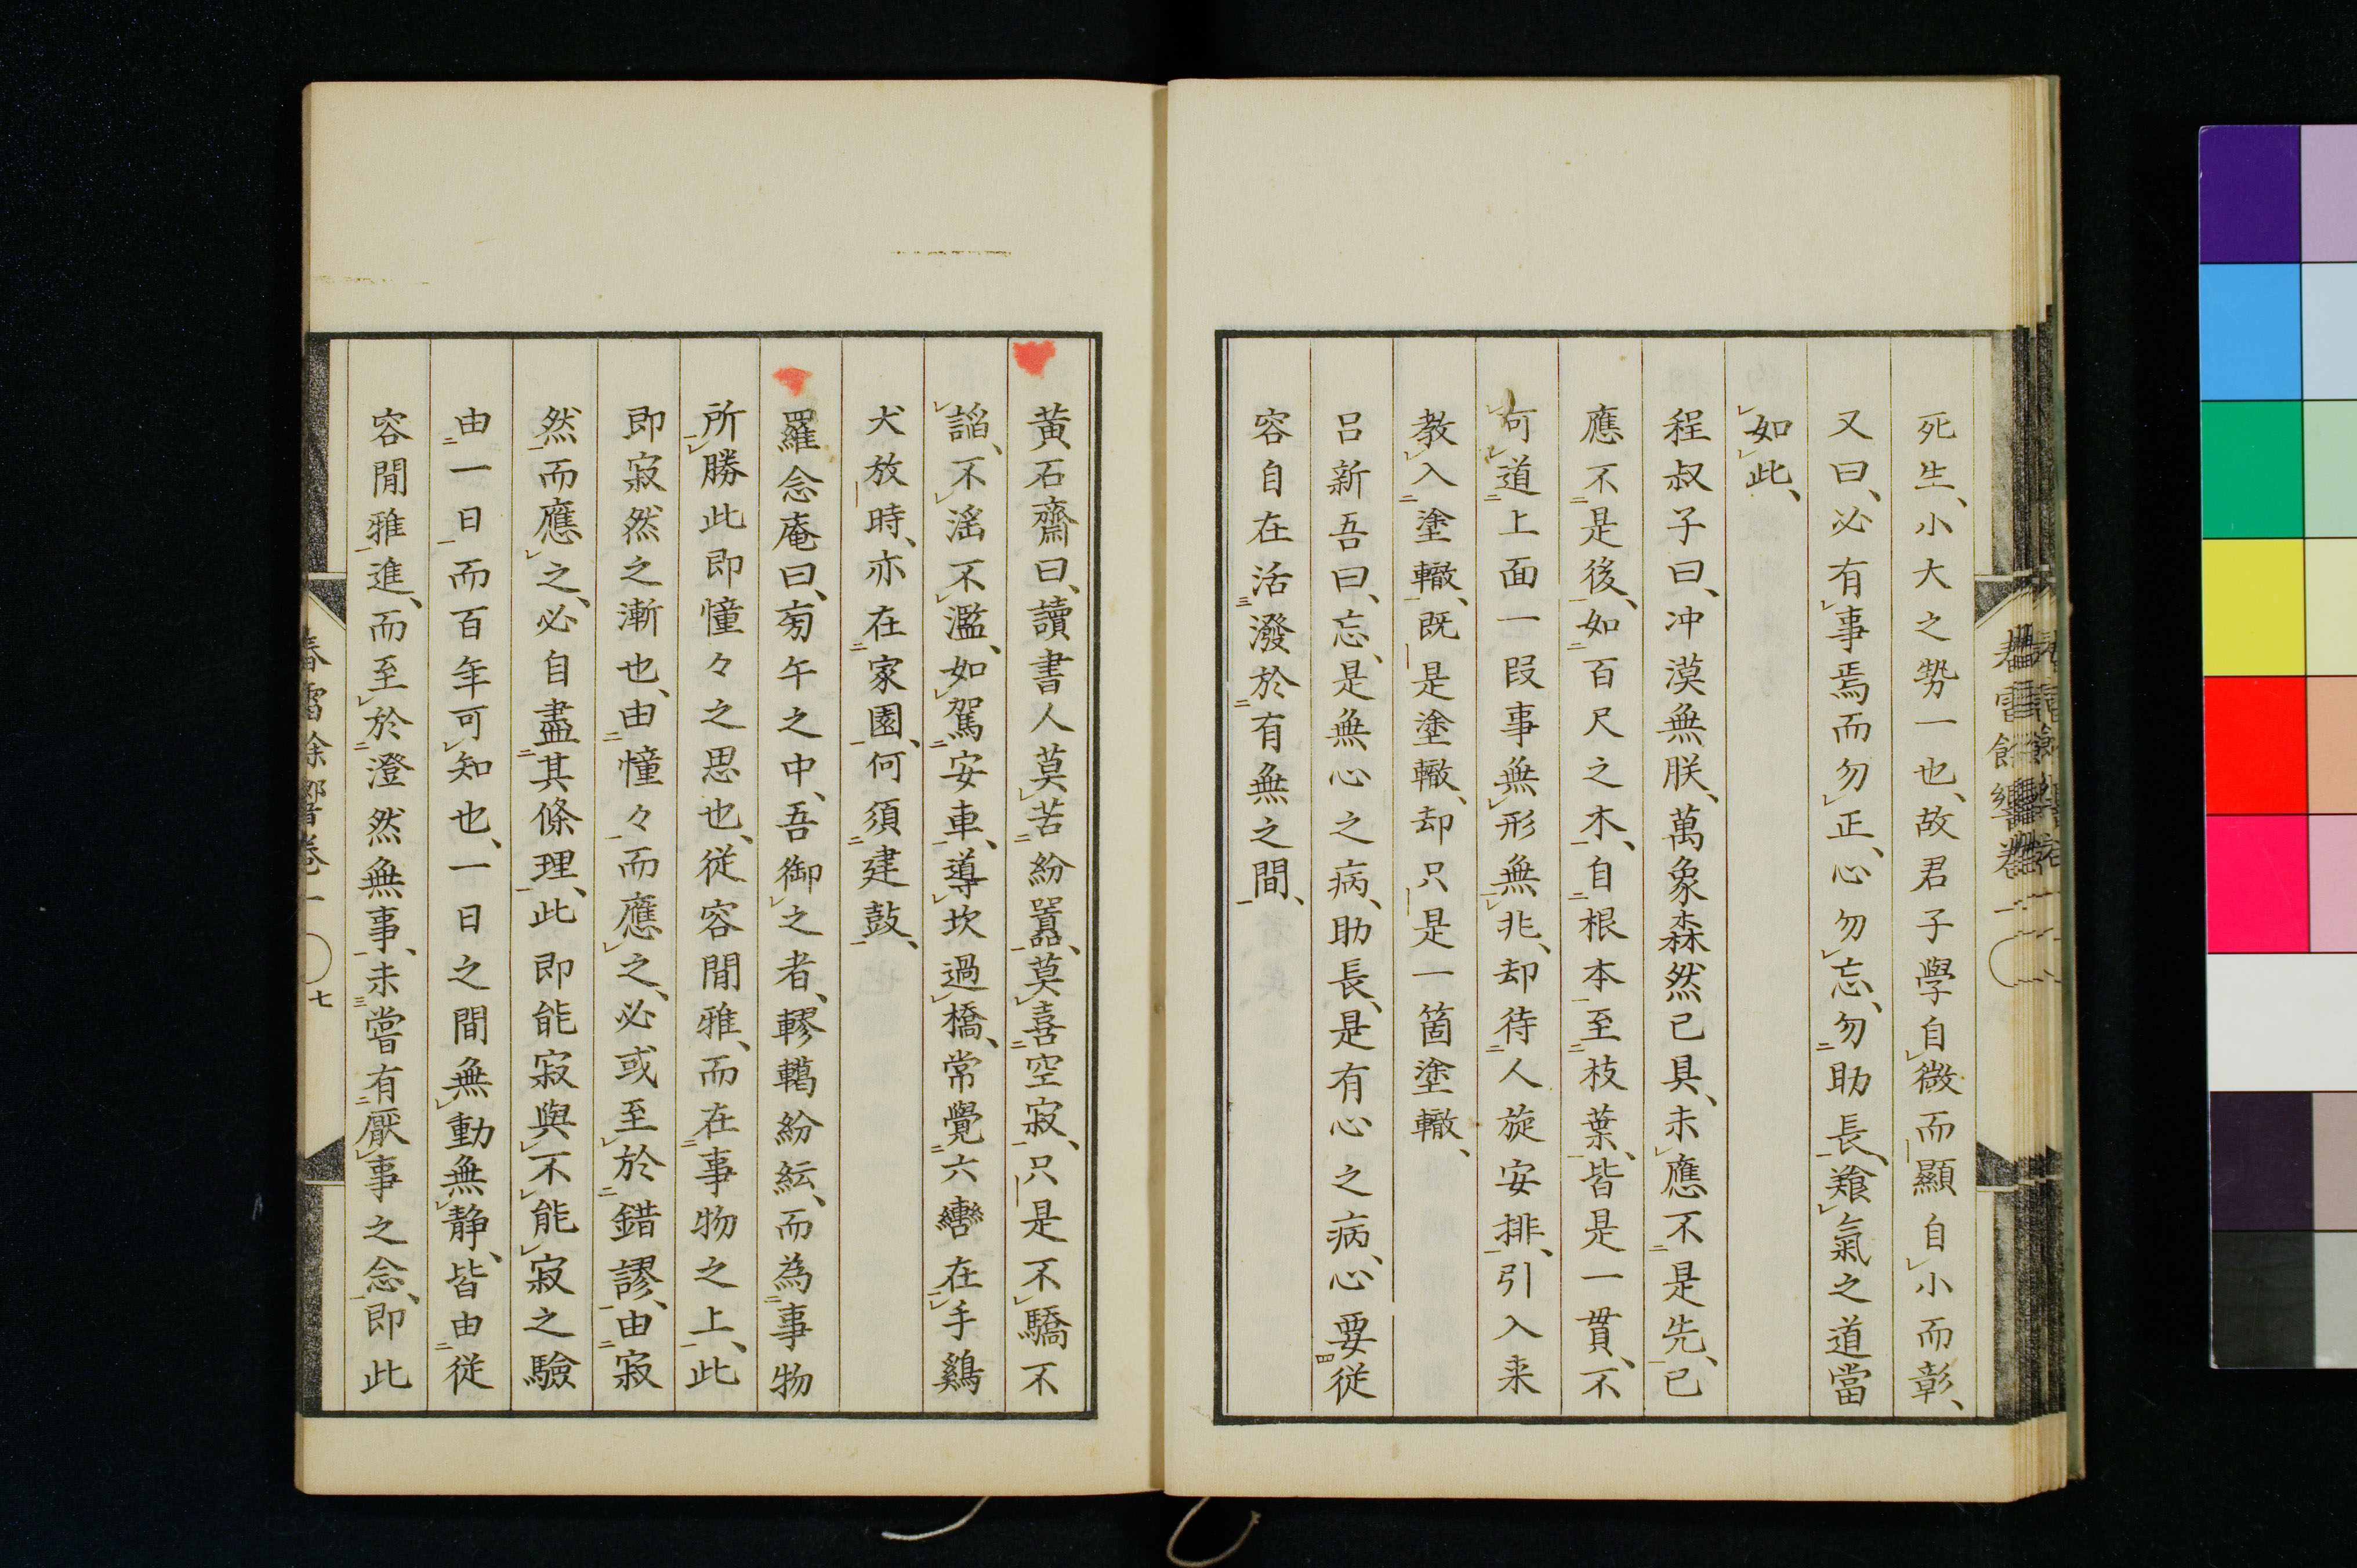 死生、小大之勢一也、故君子學自微而顯自小而彰、
又曰、必有事焉而勿正、心勿忘、勿助長、養氣之道當
如此、
程叔子曰、冲漠無朕、萬象森然已具、未應不是先、已
應不是後、如百尺之木、自根本至枝葉、皆是一貫、不
何道上面一段事無形無兆、却待人旋安排、引入来
教入塗轍、既是塗轍、却只是一箇塗轍、
呂新吾曰、忘、是無心之病、助長、是有心之病、心要従
容自在活潑於有無之間、
黄石齋曰、讀書人莫苦紛囂、莫喜空寂、只是不驕不
謟、不滛不濫、如駕安車、導坎過橋、常覺六轡在手鷄
犬放時、亦在家園、何須建鼓、
羅念庵曰、旁午之中、吾御之者、轇轕紛紜、而為事物
所勝此即憧々之思也、従容閒雅、而在事物之上、此
即寂然之漸也、由憧々而應之、必或至於錯謬、由寂
然而應之、必自盡其條理、此即能寂與不能寂之驗
由一日而百年可知也、一日之間無動無静、皆由従
容閒雅進、而至於澄然無事、未嘗有厭事之念、即此
春雷餘響卷一 七